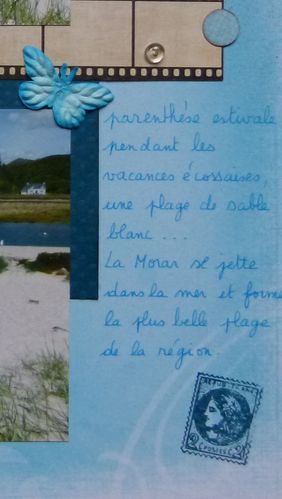 parenthèse estivale
pendant les
vacances écossaises,
une plage de sable
blanc...
La Morar se jette
dans la mer et forme
la plus belle plage
de la région.
POSTES